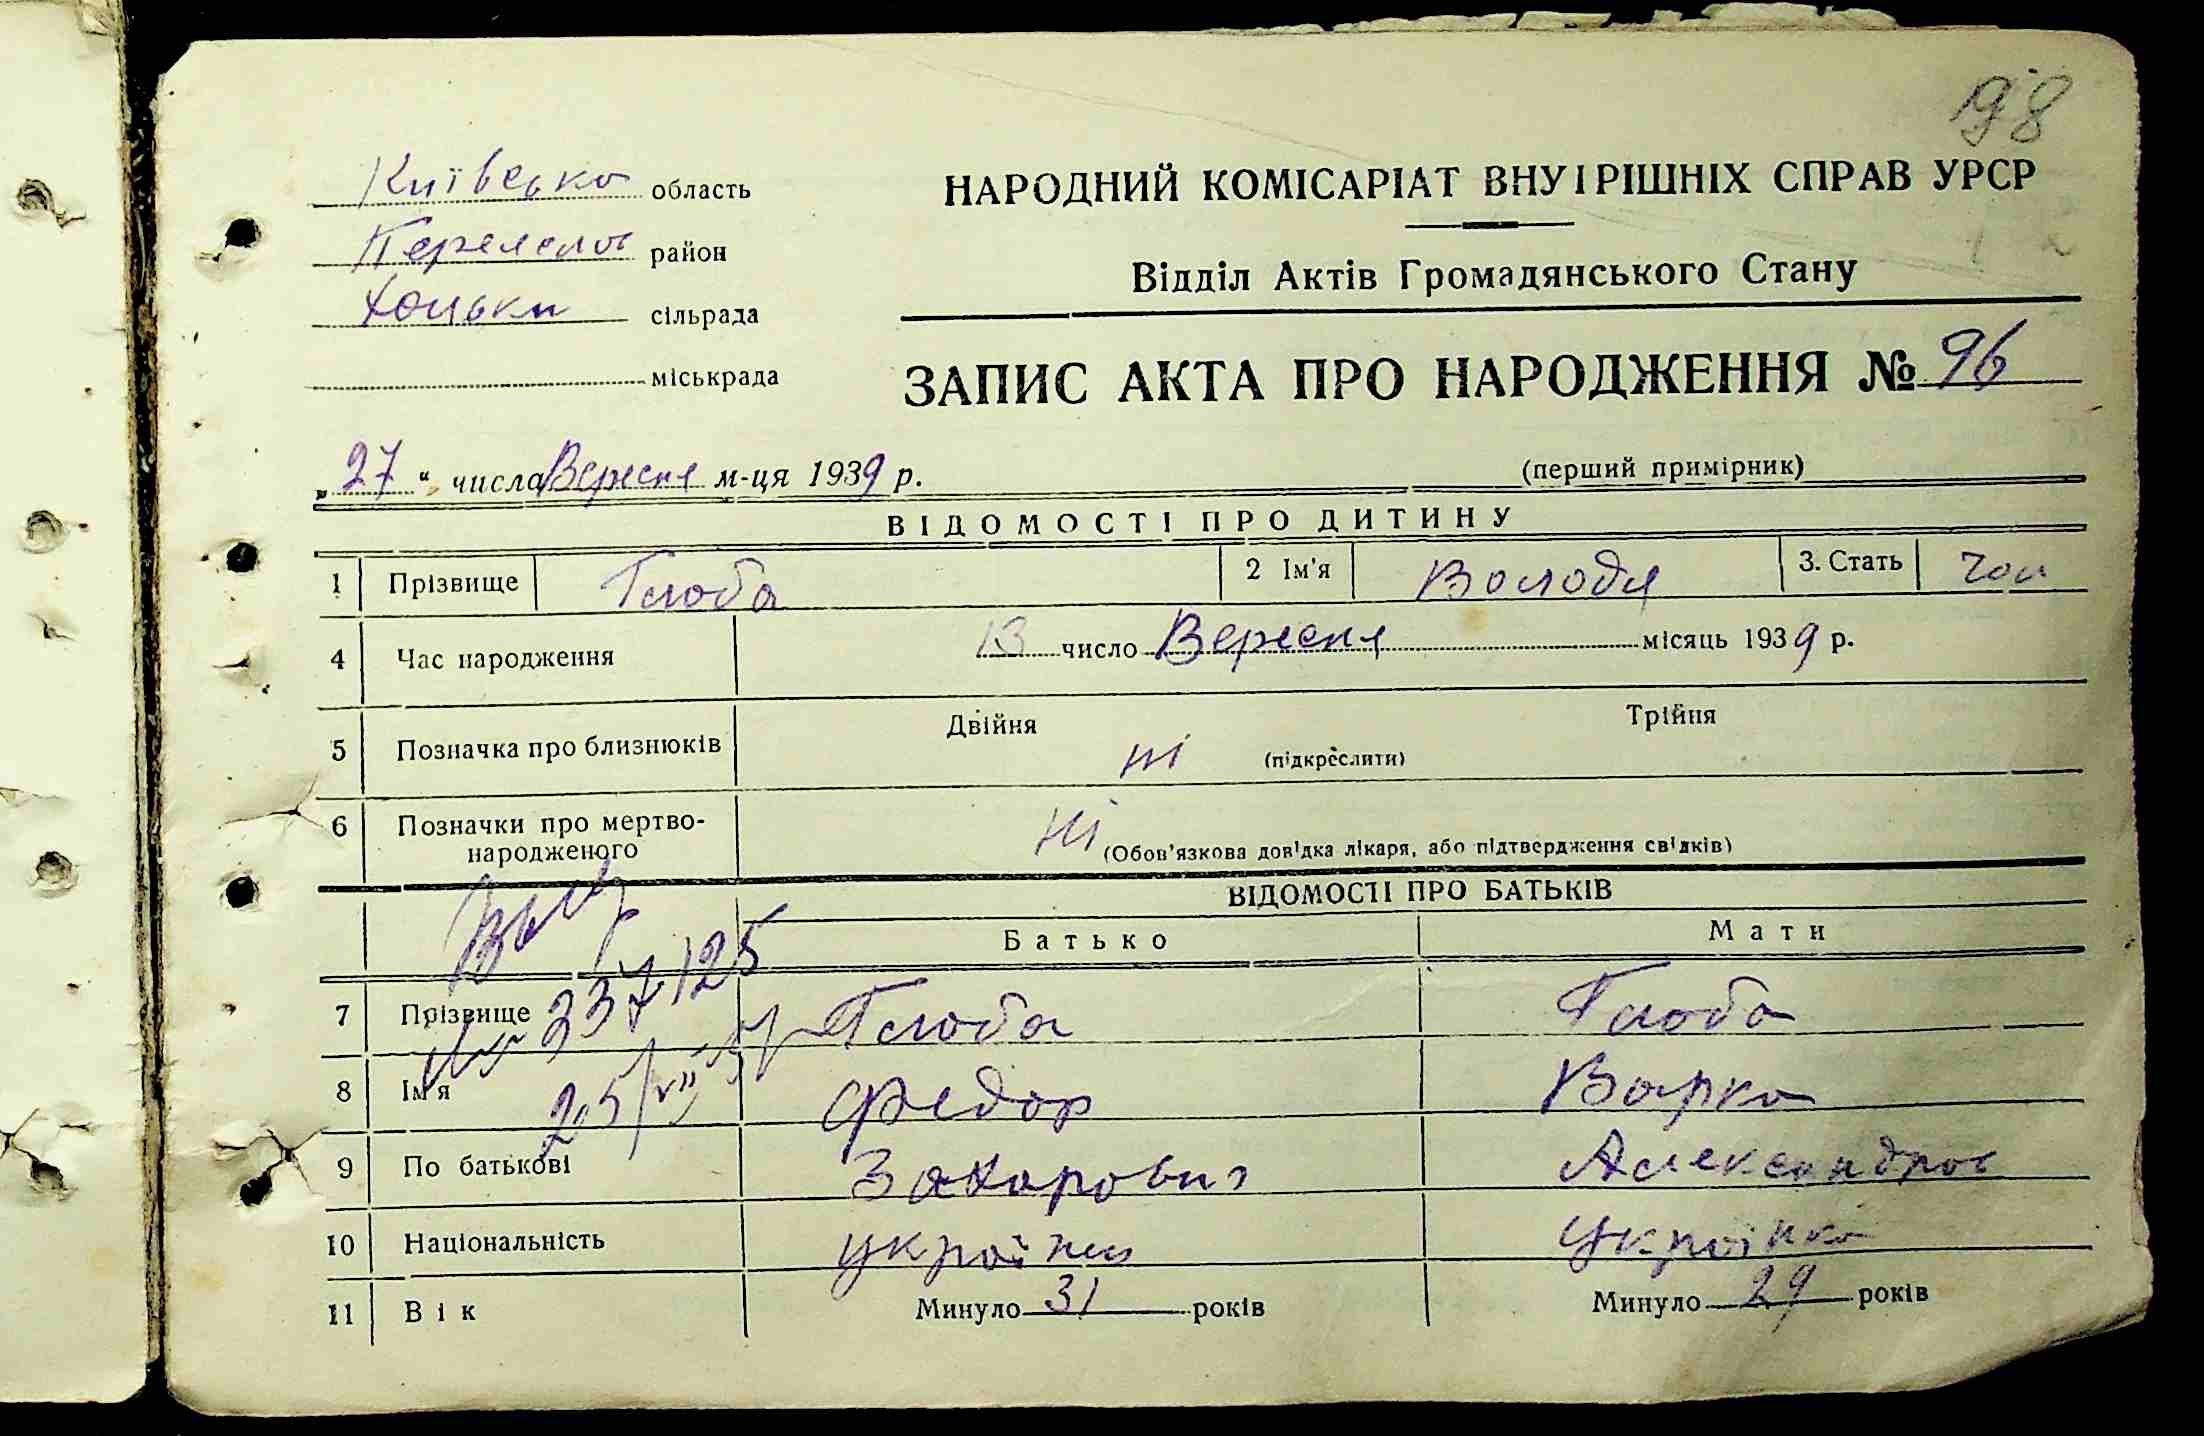 198
Київсько область
Переяслов район
Хоцьки сільрада
міськрада
НАРОДНИЙ КОМІСАРІАТ ВНУТРІШНІХ СПРАВ УРСР
Відділ Актів Громадянського Стану
ЗАПИС АКТА ПРО НАРОДЖЕННЯ № 96
„27“ числа Вересня м-ця 1939 р.
(перший примірник)
ВІДОМОСТІ ПРО ДИТИНУ
1 Прізвище Глоба 2 Ім'я Володя 3. Стать чол
4 Час народження 13 число Вересня місяць 1939 р.
5 Позначка про близнюків Двійня ні (підкреслити) Трійня
6 Позначки про мертвонародженого ні (Обов'язкова довідка лікаря, або підтвердження свідків)
ВІДОМОСТІ ПРО БАТЬКІВ
Батько Мати
№ 237125
7 Прізвище Глоба Глоба
8 Ім'я Федор Варка
9 По батькові Захарович Александров
10 Національність українец українка
11 Вік Минуло 31 років Минуло 29 років